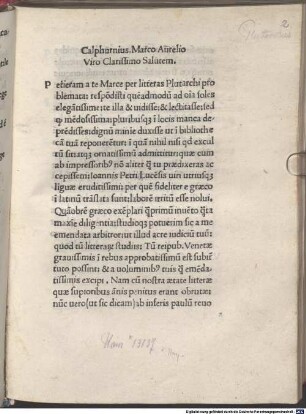 2
Plutarchus
Calphurnius. Marco Aurelio
Viro Clarissimo Salutem.
P etieram a te Marce per litteras Plutarchi pro
blemata: respōdisti quēadmodū ad oīa soles
elegātissime te illa & uidisse: & lectitasse: sed
q̄ mēdosissima pluribusq̄ ī locis manca de-
prēdissē dignū minīe duxisse ut ī bibliothe
cā tuā reponerētur: ī quā nihil nisi qd excul
tū sit atq̄ ornatissimū admittitur: quæ cum
ab impressorib⁹ nō aliter q̄ tu prædixeras ac
cepissem: Ioannis Petri Lucēsis uiri utriusq̄
liguæ eruditissimi per quē fideliter e græco
ī latinū trāslata sunt labore irritū esse nolui.
Quāobrē græco exēplari q̄primū inuēto q̄ta
maxīe diligentia: studioq̄ potuerim sic a me
emendata arbitror: ut illud acre iudiciū tuū:
quod tū litteraR studiis: Tū reipub. Venetæ
grauissimis ī rebus approbatissimū est subīr̄
tuto possint: & a uoluminib⁹ tuis q̄ emēda-
tissimis excipi. Nam cū nostra ætate litteræ
quæ supioribus ānis penitus erant obrutæ:
nūc uero (ut sic dicam) ab inferis paulū reuo